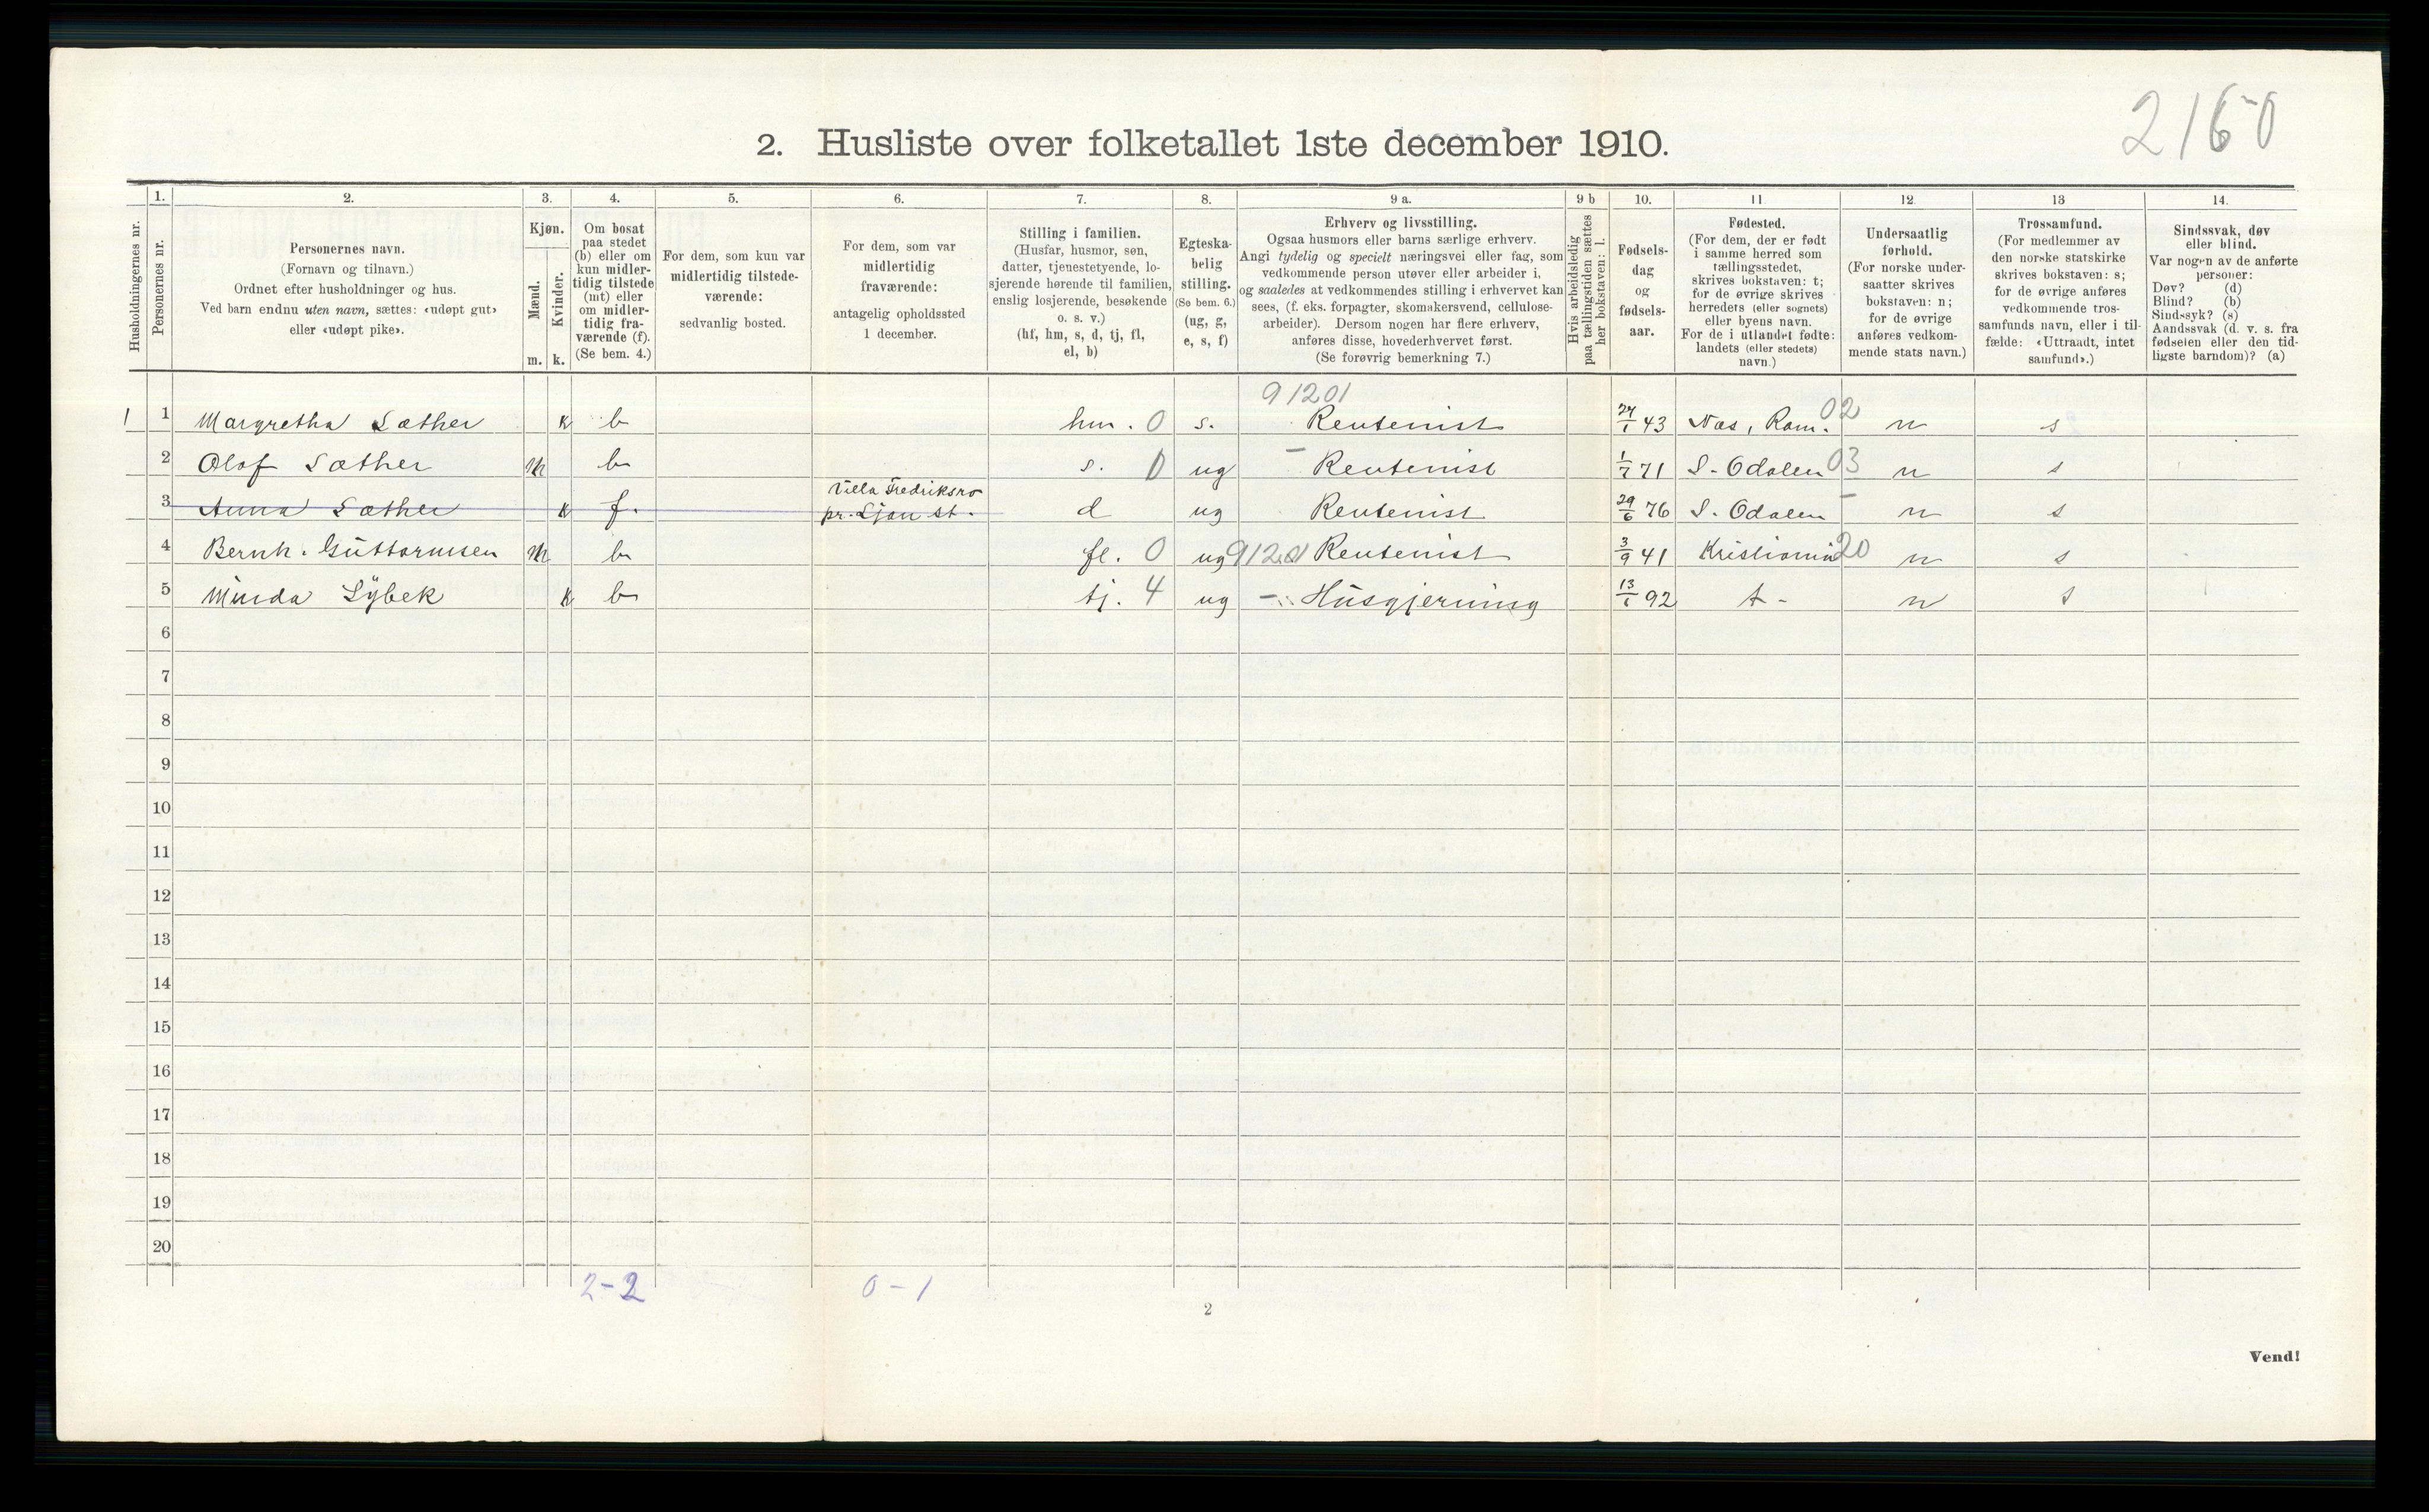 2160
2. Husliste over folketallet 1ste december 1910.
Husholdningernes nr.
1.
Personernes nr.
2.
Personernes navn.
(Fornavn og tilnavn.)
Ordnet efter husholdninger og hus.
Ved barn endnu uten navn, sættes: «udøpt gut»
eller «udøpt pike».
3.
Kjøn.
Mænd.
Kvinder.
m. k.
4.
Om bosat
paa stedet
(b) eller om
kun midler-
tidig tilstede
(mt) eller
om midler-
tidig fra-
værende (f).
(Se bem. 4.)
5.
For dem, som kun var
midlertidig tilstede-
værende:
sedvanlig bosted.
6.
For dem, som var
midlertidig
fraværende:
antagelig opholdssted
1 december.
7.
Stilling i familien.
(Husfar, husmor, søn,
datter, tjenestetyende, lo-
sjerende hørende til familien,
enslig losjerende, besøkende
o. s. v.)
(hf, hm, s, d, tj, fl,
el, b)
8.
Egteska-
belig
stilling.
(Se bem. 6.)
(ug, g,
e, s, f)
9 a.
Erhverv og livsstilling.
Ogsaa husmors eller barns særlige erhverv.
Angi tydelig og specielt næringsvei eller fag, som
vedkommende person utøver eller arbeider i,
og saaledes at vedkommendes stilling i erhvervet kan
sees, (f. eks. forpagter, skomakersvend, cellulose-
arbeider). Dersom nogen har flere erhverv,
anføres disse, hovederhvervet først.
(Se forøvrig bemerkning 7.)
9 b
Hvis arbeidsledig
paa tællingstiden sættes
her bokstaven: l.
10.
Fødsels-
dag
og
fødsels-
aar.
11
Fødested.
(For dem, der er født
i samme herred som
tællingsstedet,
skrives bokstaven: t;
for de øvrige skrives
herredets (eller sognets)
eller byens navn.
For de i utlandet fødte:
landets (eller stedets)
navn.)
12.
Undersaatlig
forhold.
(For norske under-
saatter skrives
bokstaven: n;
for de øvrige
anføres vedkom-
mende stats navn.)
13
Trossamfund.
(For medlemmer av
den norske statskirke
skrives bokstaven: s;
for de øvrige anføres
vedkommende tros-
samfunds navn, eller i til-
fælde: «Uttraadt, intet
samfund».)
14.
Sindssvak, døv
eller blind.
Var nogen av de anførte
personer:
Døv? (d)
Blind? (b)
Sindssyk? (s)
Aandssvak (d. v. s. fra
fødselen eller den tid-
ligste barndom)? (a)
91201
1 1 Margretha Sæther k b hm. 0 s. Rentenist 24/1 43 Næs, Rom. 02 n s
2 Olaf Sæther m b s. 0 ug - Rentenist 1/7 71 S. Odalen 03 n s
Villa Fredriksro
3 Anna Sæther k f. pr. Ljan st. d ug Rentenist 29/6 76 S. Odalen - n s
4 Bernh. Guttormsen m b fl. 0 ug 91201 Rentenist 3/9 41 Kristiania 20 n s
5 Minda Lybek k b tj. 4 ug - Husgjerning 13/1 92 t - n s
6
7
8
9
10
11
12
13
14
15
16
17
18
19
20
2-2 0-1
2
Vend!